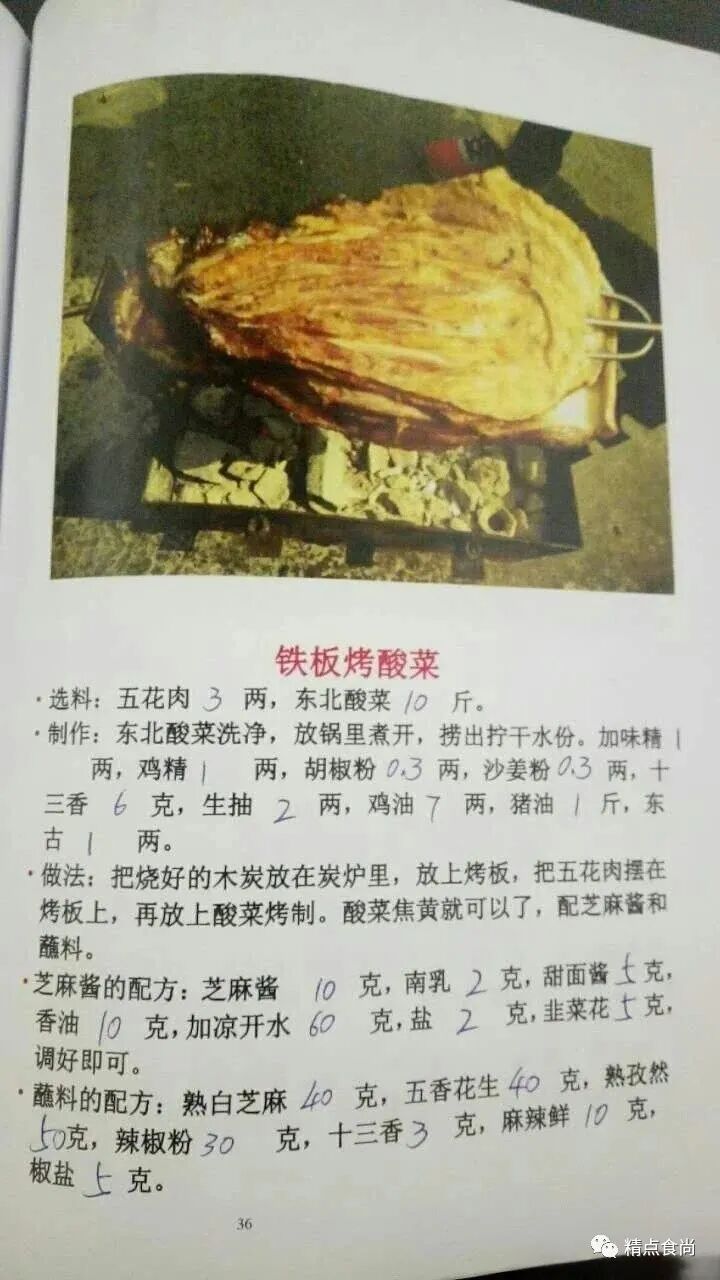 铁板烤酸菜
·选料：五花肉 3 两，东北酸菜 10 斤。
·制作：东北酸菜洗净，放锅里煮开，捞出拧干水份。加味精 1
两，鸡精 1 两，胡椒粉 0.3 两，沙姜粉 0.3 两，十
三香 6 克，生抽 2 两，鸡油 7 两，猪油 1 斤，东
古 1 两。
·做法：把烧好的木炭放在炭炉里，放上烤板，把五花肉摆在
烤板上，再放上酸菜烤制。酸菜焦黄就可以了，配芝麻酱和
蘸料。
·芝麻酱的配方：芝麻酱 10 克，南乳 2 克，甜面酱 5 克，
香油 10 克，加凉开水 60 克，盐 2 克，韭菜花 5 克，
调好即可。
·蘸料的配方：熟白芝麻 40 克，五香花生 40 克，熟孜然
50克，辣椒粉 30 克，十三香 3 克，麻辣鲜 10 克，
椒盐 5 克。
36
精点食尚